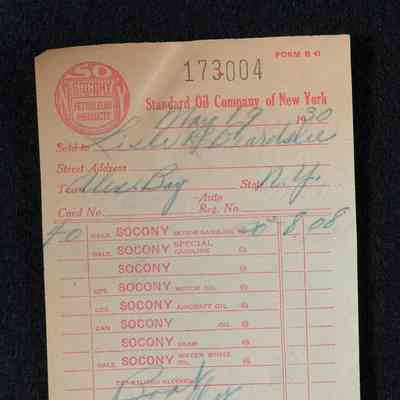 FORM B 43
SO
SOCONY
PETROLEUM
PRODUCTS
173004
Standard Oil Company of New York
May 19 1930
Sold to
Street Address
Town Alex Bay State N.Y.
Card No. Auto Reg. No.
40 GALS. SOCONY MOTOR GASOLINE @ 8 08
GALS. SOCONY SPECIAL GASOLINE @
SOCONY @
QTS. SOCONY MOTOR OIL @
GALS. SOCONY AIRCRAFT OIL @
CAN SOCONY OIL @
SOCONY GEAR @
GALS. SOCONY WATER WHITE OIL @
DENATURED ALCOHOL